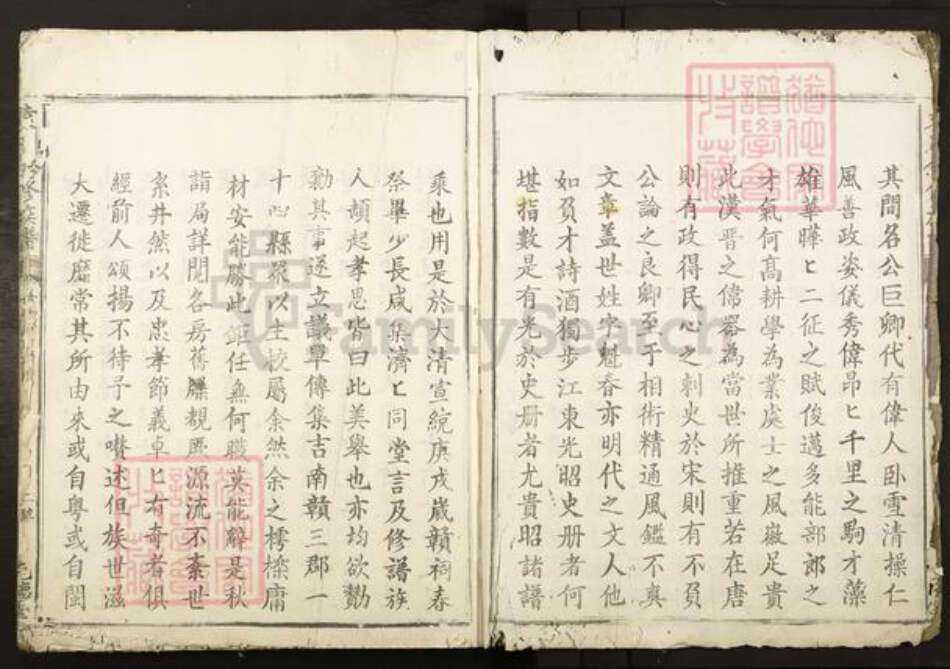 其間名公巨卿代有偉人卧雪清操仁
風善政姿儀秀偉昂匕千里之駒才藻
雄華曄匕二征之賦俊邁多能部郎之
才氣何高耕學為業處士之風嶶足貴
此漢晋之偉器為當世所推重若在唐
則有政得民心之刺史於宋則有不負
公論之良卿至于相術精通風鑑不爽
文章盖世姓字魁春亦明代之文人他
如負才詩酒獨步江東光昭史册者何
堪指數是有光於史册者尤貴昭諸譜
乘也用是於大清宣統庚戌嵗贛祠春
祭畢少長咸集濟匕同堂言及修譜族
人頓起孝思皆曰此美舉也亦均欲勷
勷其事遂立議單傳集吉南贛三郡一
十 縣衆以主校屬余然余之樗櫟庸
材安能勝此鉅任無何職莫能辭是秋
詣局詳閲各房舊牒覩厥源流不紊世
系井然以及忠孝節義卓匕有奇者俱
經前人頌揚不待予之囋述但族世滋
大遷徙靡常其所由來或自粤或自閩
FamilySearch